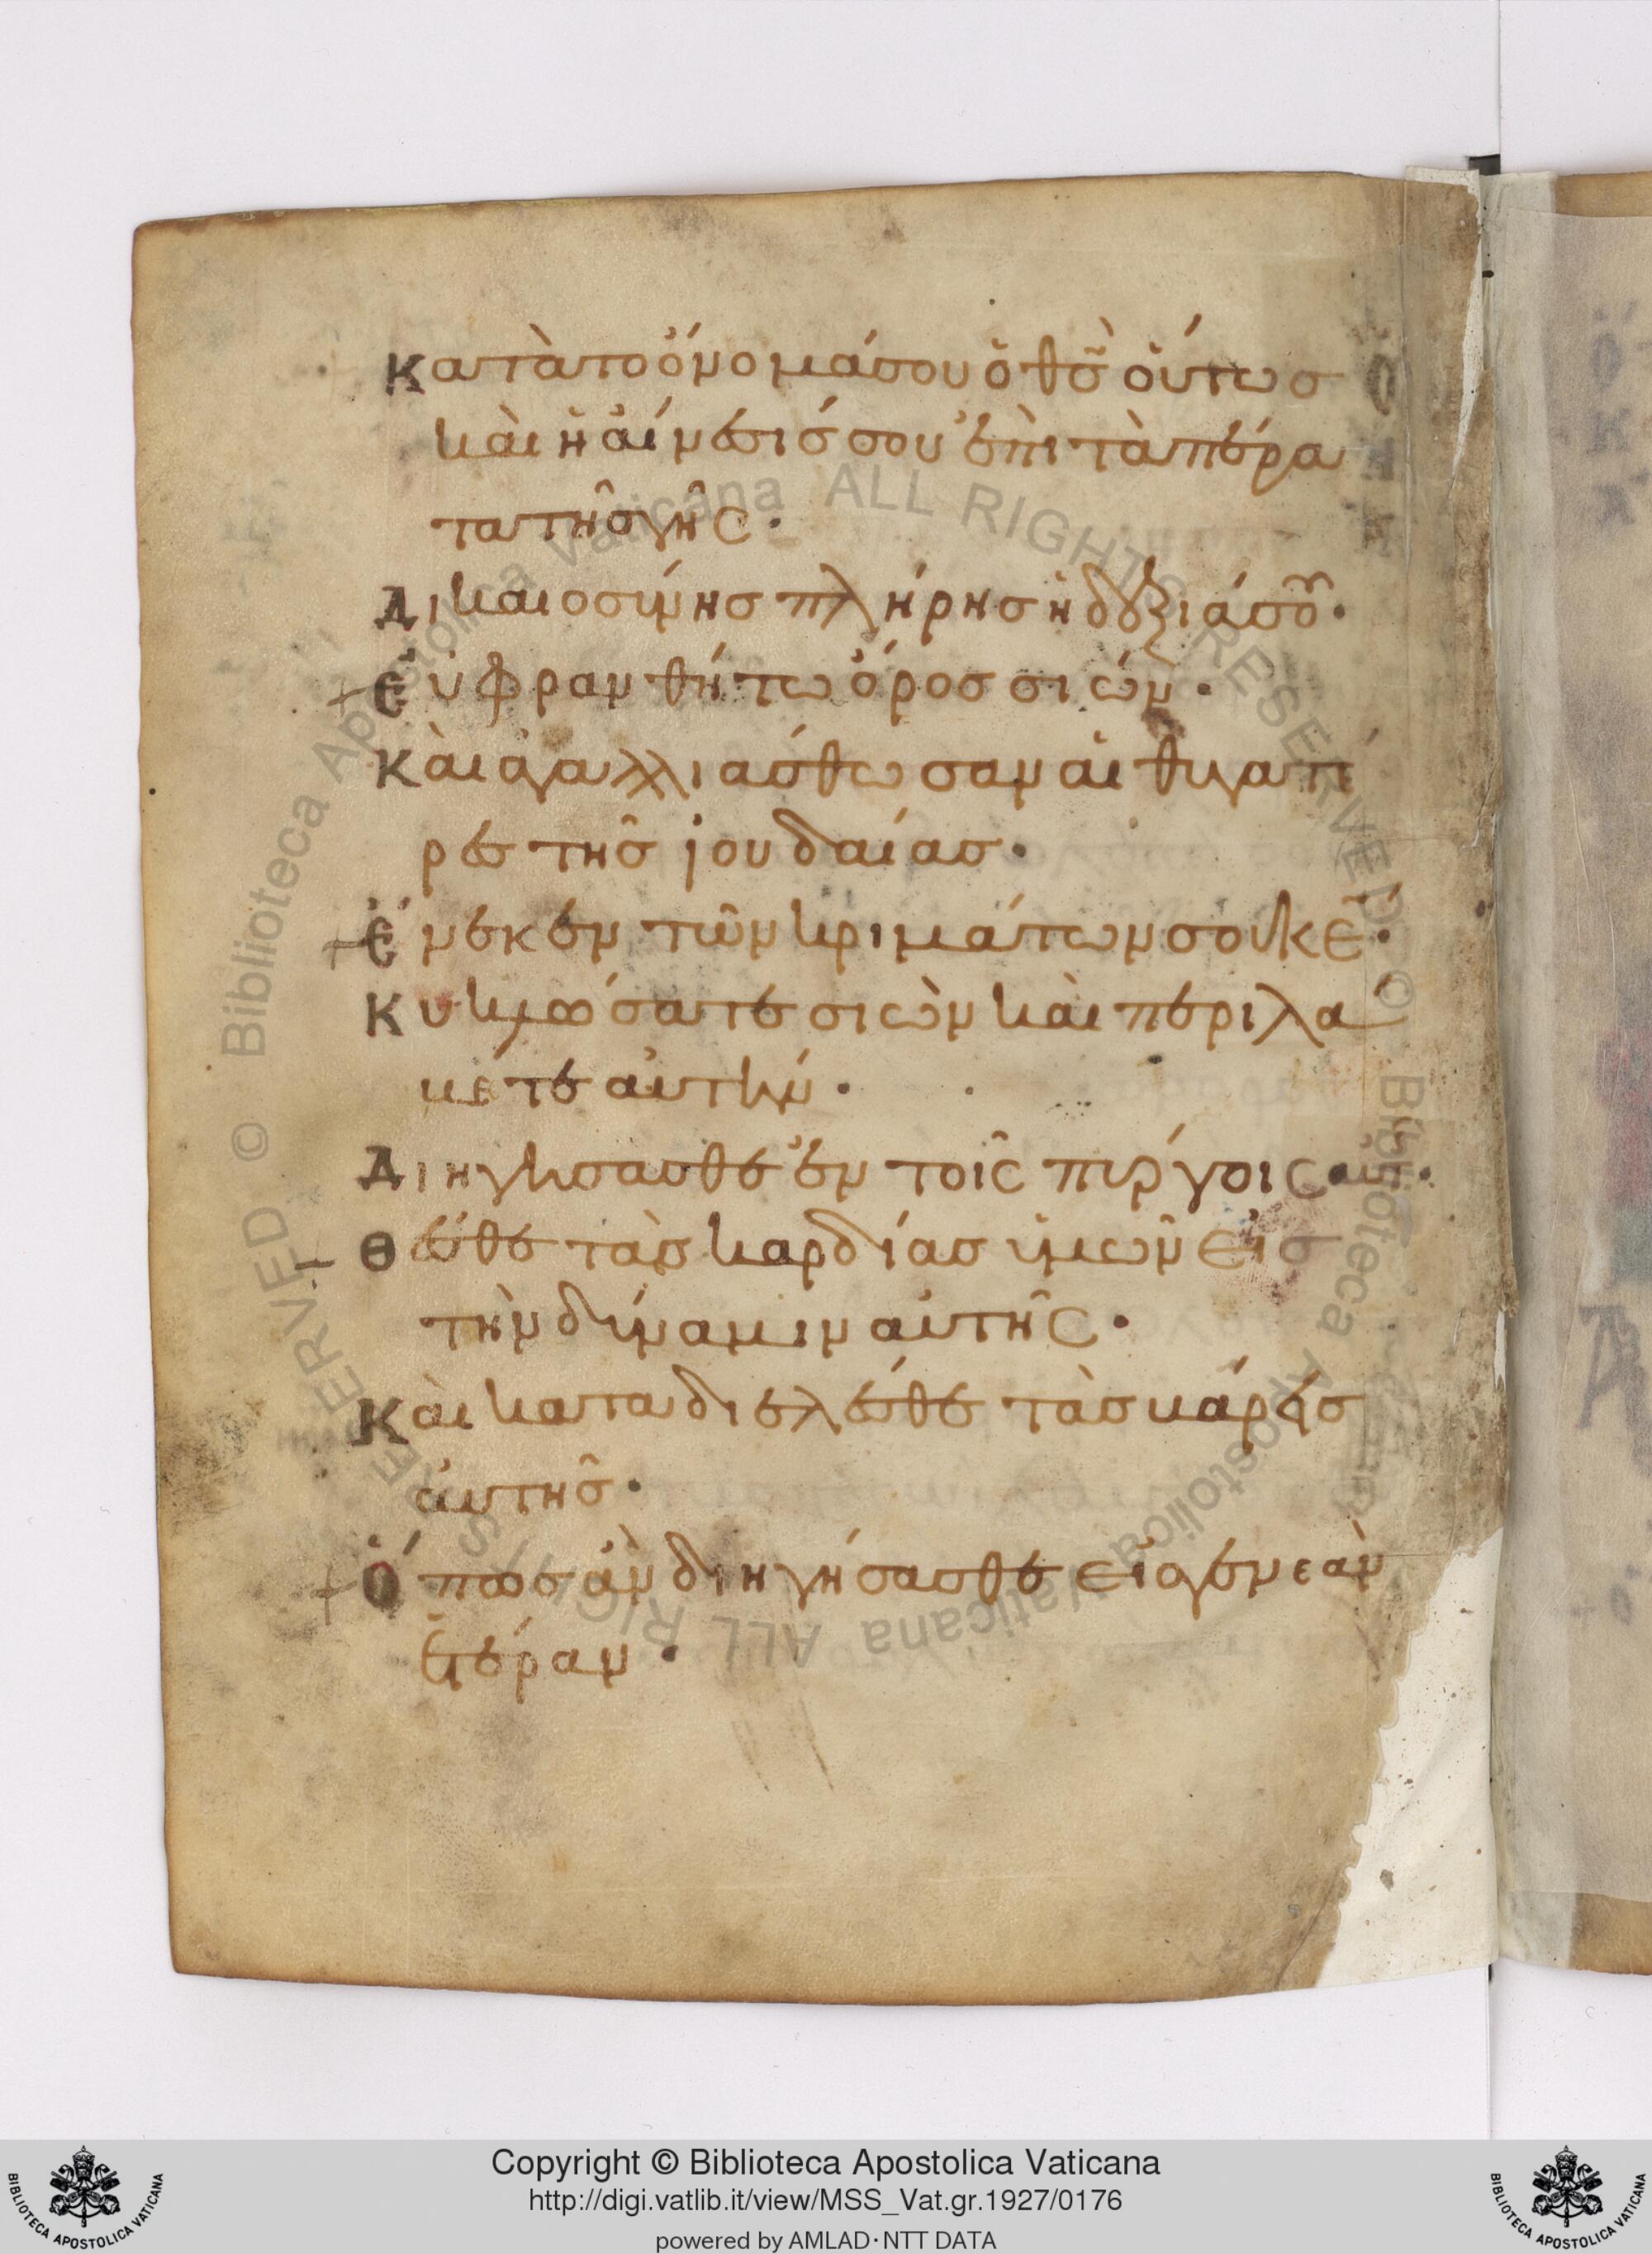 Κατὰ τὸ ὄνομά σου ὁ θς̃ οὕτως
καὶ ἡ αἴνεσίς σου ἐπὶ τὰ πέρα
τα τῆς γῆς·
Δικαιοσύνης πλήρης ἡ δεξιά σου·
Εὐφρανθήτω ὄρος σιών·
Καὶ ἀγαλλιάσθωσαν αἱ θυγατέ
ρες τῆς ἰουδαίας·
Ἕνεκεν τῶν κριμάτων σου κε̃·
Κυκλώσατε σιὼν καὶ περιλά
βετε αὐτήν·
Διηγήσασθε ἐν τοῖς πύργοις αὐτ·
Θέσθε τὰς καρδίας ὑμῶν εἰς
τὴν δύναμιν αὐτῆς·
Καὶ καταδιέλεσθε τὰς βάρεις
αὐτῆς·
Ὅπως ἂν διηγήσασθε εἰς γενεὰν
ἑτέραν·
Copyright © Biblioteca Apostolica Vaticana
http://digi.vatlib.it/view/MSS_Vat.gr.1927/0176
powered by AMLAD·NTT DATA
BIBLIOTECA APOSTOLICA VATICANA
BIBLIOTECA APOSTOLICA VATICANA
© Biblioteca Apostolica Vaticana ALL RIGHTS RESERVED © Biblioteca Apostolica Vaticana ALL RIGHTS RESERVED